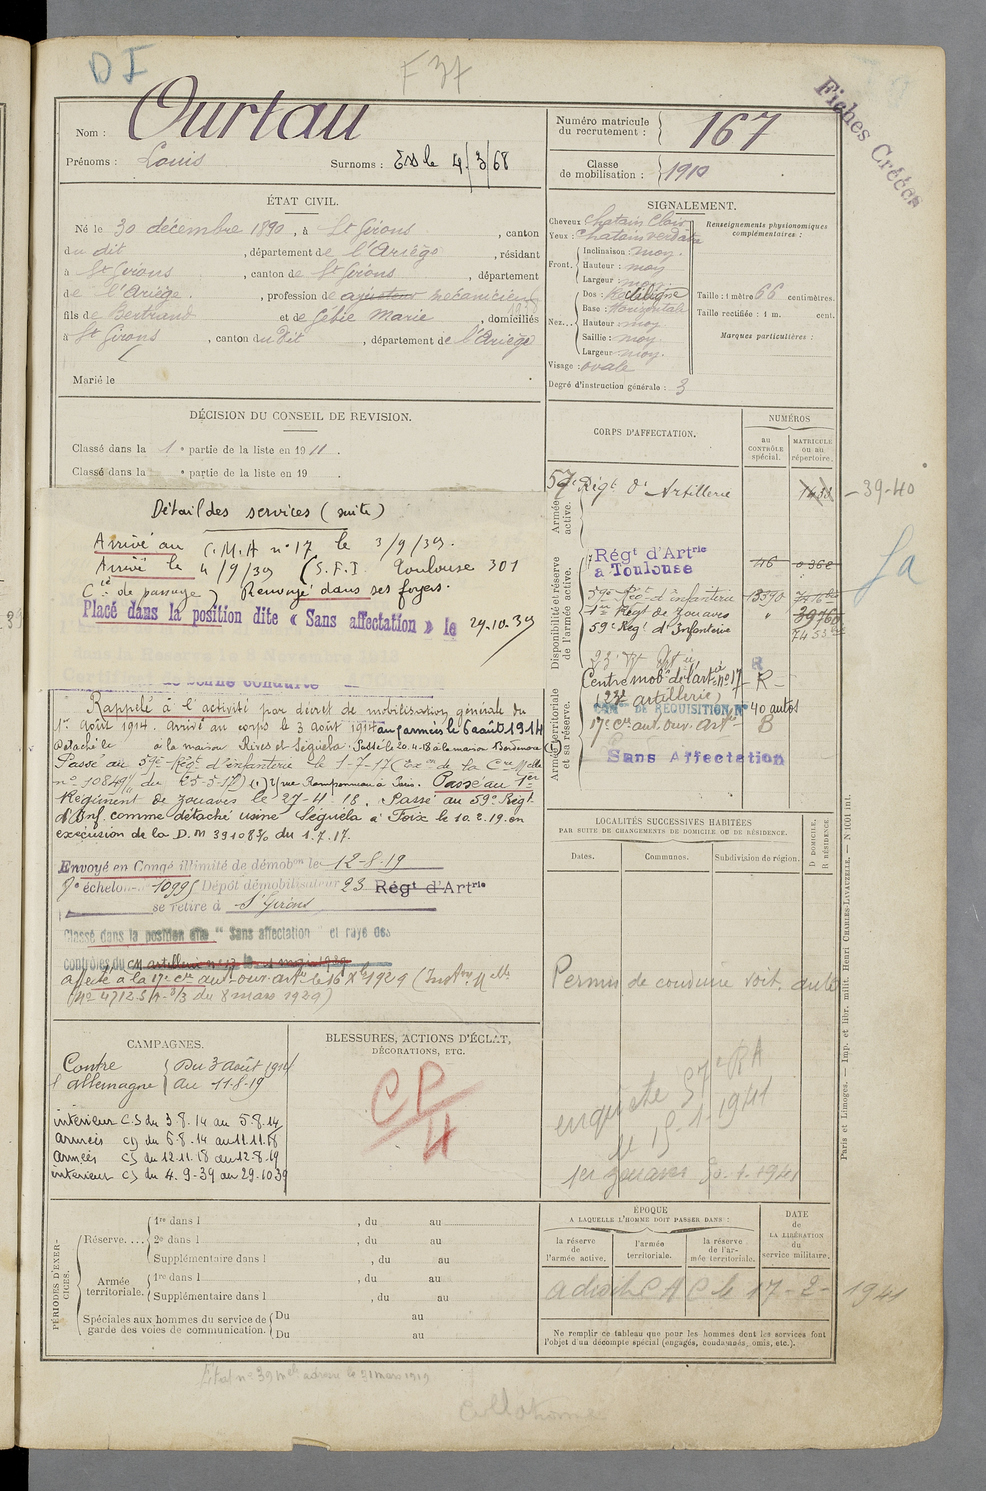 D I
F 37
Fiches Créées
Nom : Ourtau
Prénoms : Louis Surnoms : Ex le 4/3/68
Numéro matricule
du recrutement : 167
Classe
de mobilisation : 1910
ÉTAT CIVIL.
Né le 30 décembre 1890, à St Girons, canton
du dit, département de l'Ariège, résidant
à St Girons, canton de St Girons, département
de l'Ariège, profession de ajusteur mécanicien
fils de Bertrand et de Gébie Marie, domiciliés
à St Girons, canton du Dit, département de l'Ariège
Marié le
SIGNALEMENT.
Cheveux Chatain Clair
Yeux : Chatain verdatre
Front. Inclinaison : moy.
Hauteur : moy
Largeur : moy
Nez... Dos : Rectiligne
Base : Horizontale
Hauteur moy
Saillie : moy.
Largeur moy.
Visage : ovale
Degré d'instruction générale : 3
Renseignements physionomiques
complémentaires :
Taille : 1 mètre 66 centimètres.
Taille rectifiée : 1 m. cent.
Marques particulières :
DÉCISION DU CONSEIL DE REVISION.
Classé dans la 1e partie de la liste en 1911.
Classé dans la e partie de la liste en 19 .
Détail des services (suite)
Arrivé au C.M.A n° 17 le 3/9/39.
Arrivé le 4/9/39 (S.F.I Toulouse 301
Cie de passage) Renvoyé dans ses foyers.
Placé dans la position dite « Sans affectation » le 29.10.39
Rappelé à l'activité par décret de mobilisation générale du
1er Août 1914. Arrivé au corps le 3 août 1914 aux armées le 6 août 1914
Détaché le à la maison Rives et Séguéla. Passé le 20.4.18 à la maison Bordenave (1)
Passé au 59e Régt d'infanterie le 1-7-17 (Exon de la Cre Mlle
n° 10849 du 25-5-17) (1) 2 rue Ramponneau à Paris. Passé au 1er
Régiment de Zouaves le 27-4-18. Passé au 59e Régt
d'Inf. comme détaché usine Séguéla à Foix le 10.2.19 en
exécusion de la D.M du 1.7.17.
Envoyé en Congé illimité de démobon le 12-8-19
7e échelon n° 10995 Dépôt démobilisateur 23 Régt d'Artrie
se retire à St Girons
Classé dans la position dite " Sans affectation " et rayé des
contrôles du CM artillerie n° 17 le 1 mai 1929
affecté à la 17e Cie aut. ouv. artie le 16 Xbre 1929 (Instion Mlle
n° 4712.3/1-3/3 du 8 mars 1929)
CORPS D'AFFECTATION.
NUMÉROS
au
CONTRÔLE
spécial.
MATRICULE
ou au
répertoire.
Armée
active.
57e Régt d'Artillerie
39-40
Disponibilité et réserve
de l'armée active.
Régt d'Artrie
à Toulouse 46
59e Régt d'infanterie 13590
1er Régt de Zouaves " 39760
59e Régt d'Infanterie
Armée territoriale
et sa réserve.
Centre mobon de l'artie n° 17 R
(23e artillerie)
COMon DE REQUISITION N° 40 autos
17e Cie aut. ouv. Artie B
Sans Affectation
LOCALITÉS SUCCESSIVES HABITÉES
PAR SUITE DE CHANGEMENTS DE DOMICILE OU DE RÉSIDENCE.
Dates.
Communes.
Subdivision de région.
D DOMICILE,
R RÉSIDENCE.
Permis de conduire voit. auto
enquête 57e RA
le 15-1-1941
1er zouaves 30.1.1941
CAMPAGNES.
Contre { Du 3 Août 1914
l'allemagne { Au 11-8-19
intérieur CS du 3.8.14 au 5.8.14
armées CD du 6.8.14 au 11.11.18
armées CS du 12.11.18 au 12.8.19
intérieur CS du 4.9-39 au 29.10 39
BLESSURES, ACTIONS D'ÉCLAT,
DÉCORATIONS, ETC.
CP/4
PÉRIODES D'EXERCICES.
Réserve.... 1re dans l , du au
2e dans l , du au
Supplémentaire dans l , du au
Armée
territoriale. 1re dans l , du au
Supplémentaire dans l , du au
Spéciales aux hommes du service de
garde des voies de communication. Du au
Du au
ÉPOQUE
A LAQUELLE L'HOMME DOIT PASSER DANS :
la réserve
de
l'armée active.
l'armée
territoriale.
la réserve
de l'armée territoriale.
DATE
de
LA LIBÉRATION
du
service militaire.
a droit C A C le 17-2-1941
Ne remplir ce tableau que pour les hommes dont les services font
l'objet d'un décompte spécial (engagés, condamnés, omis, etc.).
Paris et Limoges. — Imp. et libr. milit. Henri CHARLES-LAVAUZELLE. — N° 1601 int.